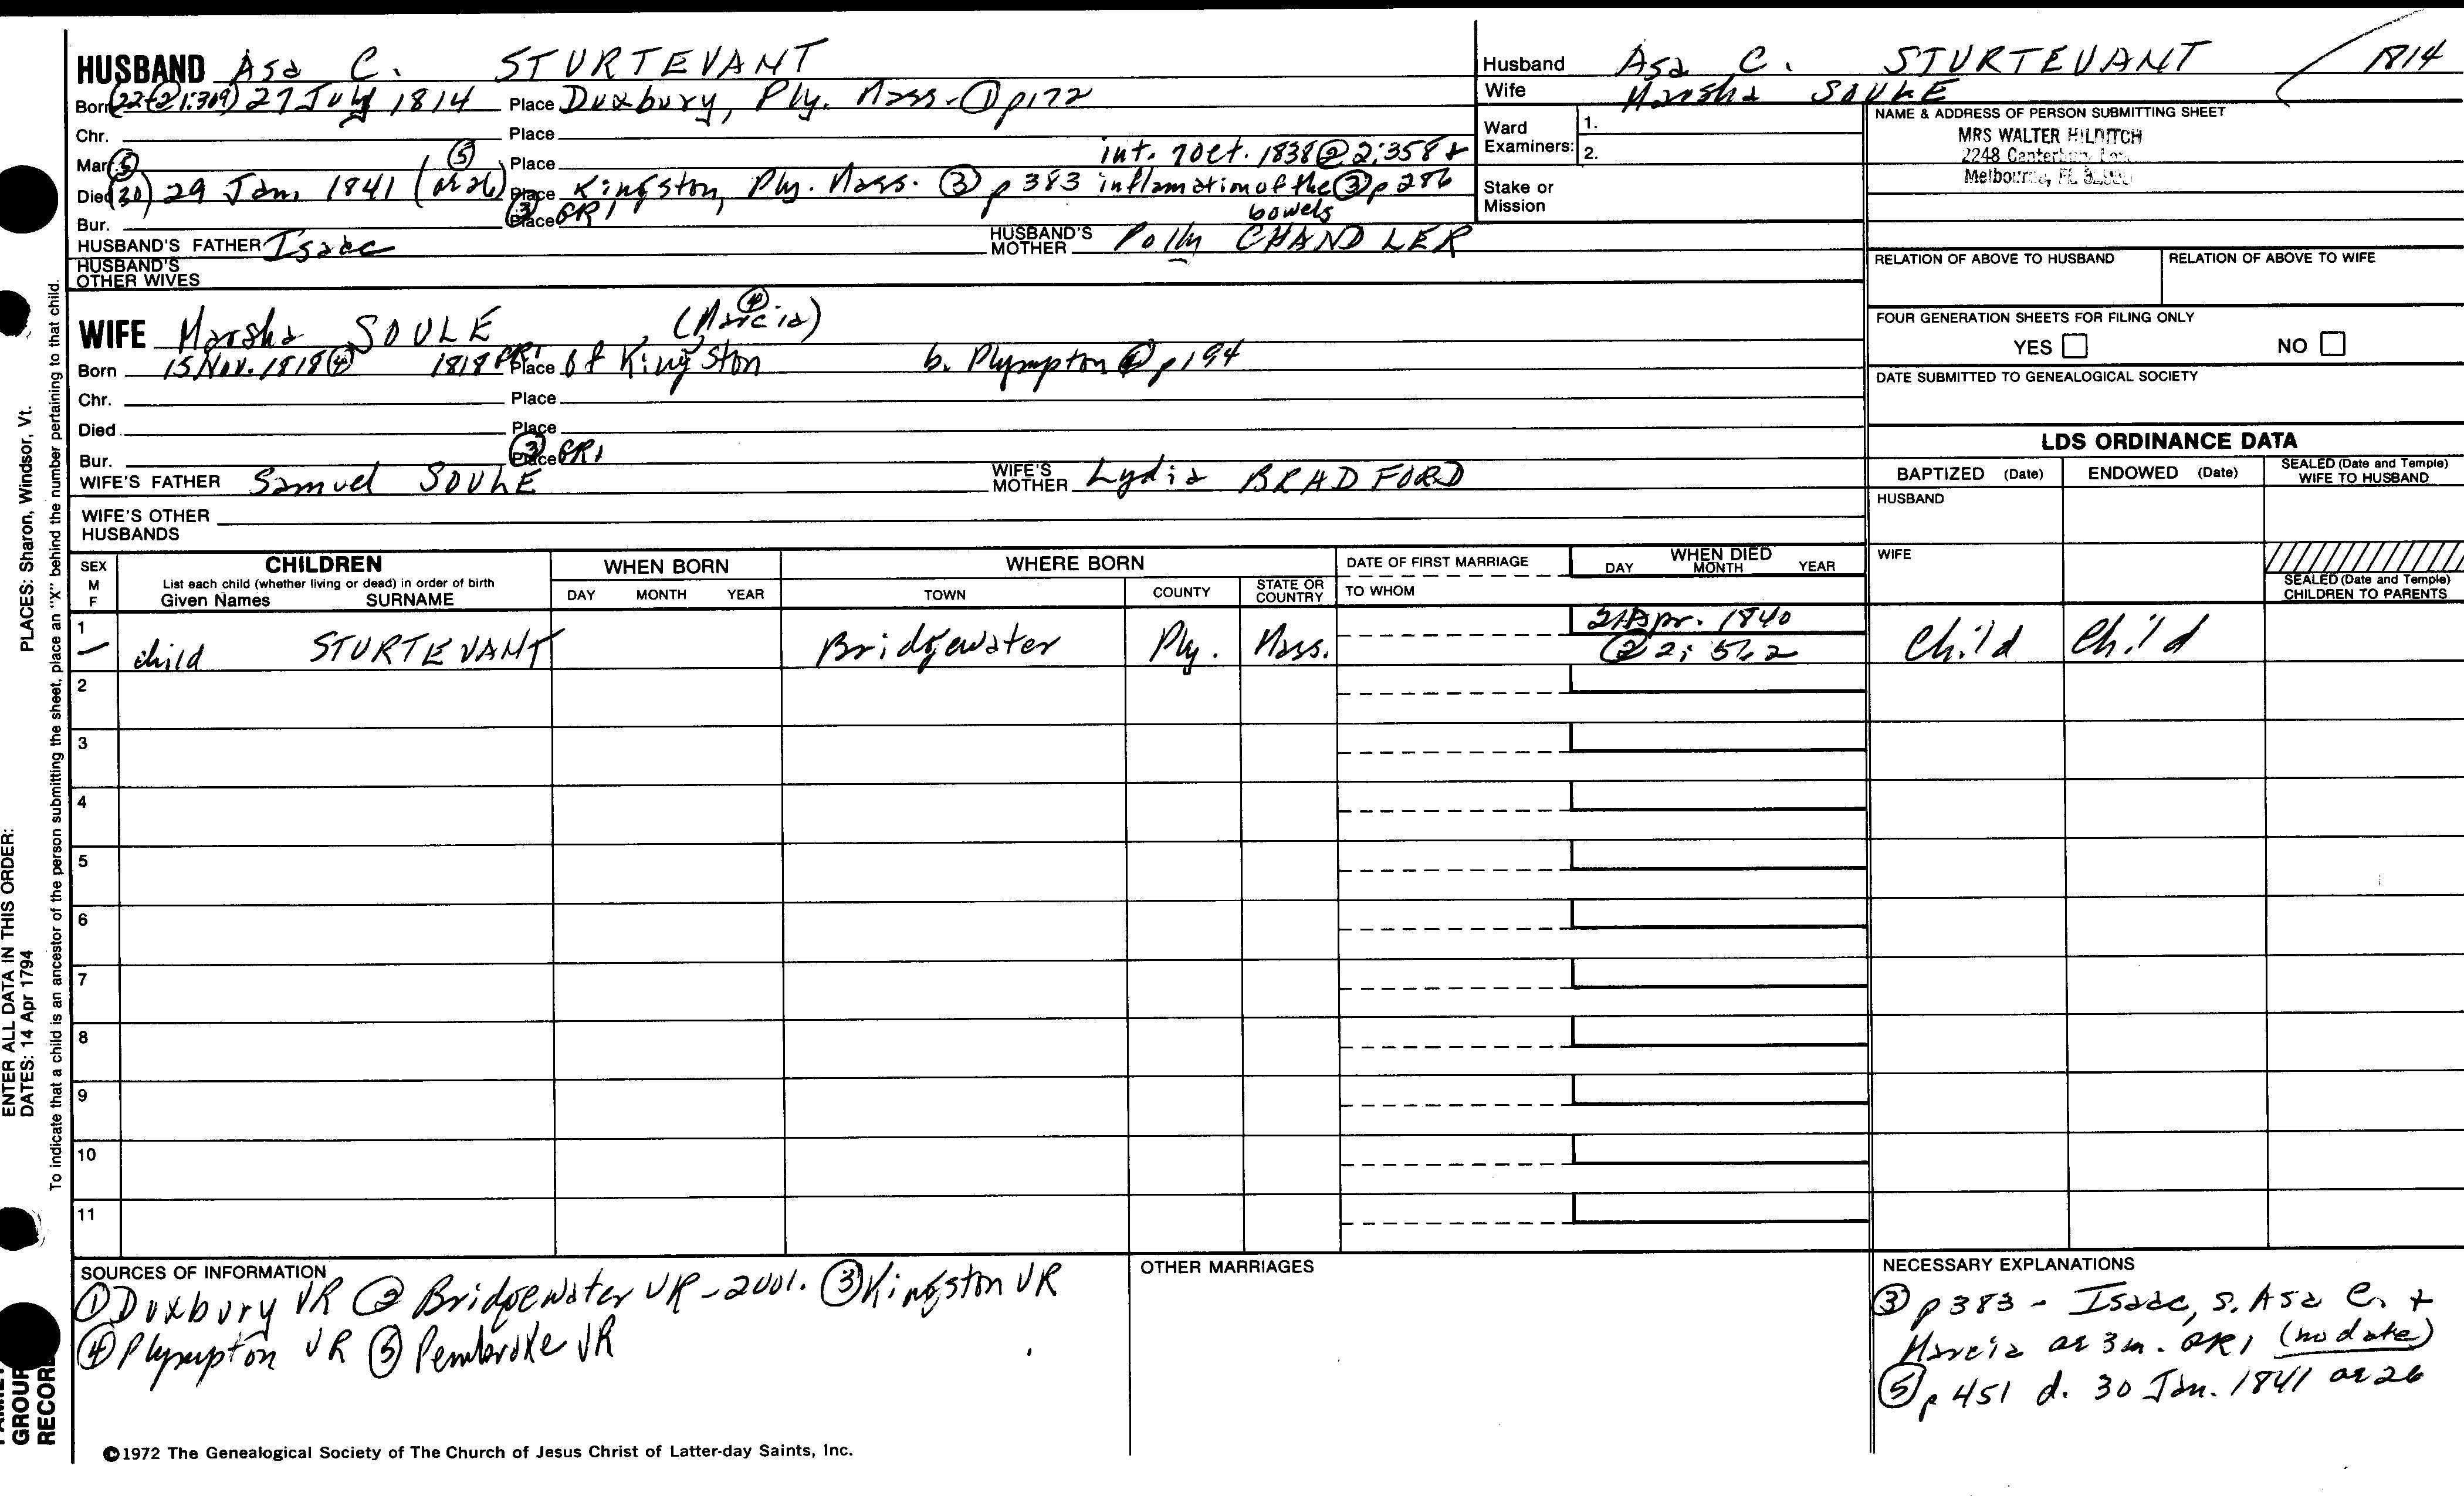 HUSBAND Asa C. STURTEVANT
Born (22-②1:309) 27 July 1814 Place Duxbury, Ply. Mass. ① p172
Chr. Place
Mar. ⑤ ⑤ Place int. 7 Oct. 1838 ② 2:358 &
Died (30) 29 Jan. 1841 (ae 26) Place Kingston, Ply. Mass. ③ p 383 inflamation of the ③ p 286
bowels
Bur. Place ③ GR1
HUSBAND'S FATHER Isaac HUSBAND'S MOTHER Polly CHANDLER
HUSBAND'S OTHER WIVES
WIFE Marsha SOULE (Marcia) ④
Born 15 Nov. 1818 ④ 1818 GR1 Place of Kingston b. Plympton ④ p 194
Chr. Place
Died Place
Bur. Place ③ GR1
WIFE'S FATHER Samuel SOULE WIFE'S MOTHER Lydia BRADFORD
WIFE'S OTHER HUSBANDS
Husband Asa C. STURTEVANT 1814
Wife Marsha SOULE
Ward Examiners: 1.
2.
Stake or Mission
NAME & ADDRESS OF PERSON SUBMITTING SHEET
MRS WALTER HILDITCH
2248
Melbourne, FL
RELATION OF ABOVE TO HUSBAND RELATION OF ABOVE TO WIFE
FOUR GENERATION SHEETS FOR FILING ONLY
YES NO
DATE SUBMITTED TO GENEALOGICAL SOCIETY
LDS ORDINANCE DATA
BAPTIZED (Date) ENDOWED (Date) SEALED (Date and Temple) WIFE TO HUSBAND
HUSBAND
WIFE
SEALED (Date and Temple) CHILDREN TO PARENTS
SEX M F CHILDREN WHEN BORN WHERE BORN DATE OF FIRST MARRIAGE WHEN DIED
List each child (whether living or dead) in order of birth
Given Names SURNAME DAY MONTH YEAR TOWN COUNTY STATE OR COUNTRY TO WHOM DAY MONTH YEAR
1 21 Apr. 1840
– child STURTEVANT Bridgewater Ply. Mass. ② 2: 562 Child Child
2
3
4
5
6
7
8
9
10
11
SOURCES OF INFORMATION
① Duxbury VR ② Bridgewater VR - 2vol. ③ Kingston VR
④ Plympton VR ⑤ Pembroke VR
OTHER MARRIAGES
NECESSARY EXPLANATIONS
③ p 383 - Isaac, s. Asa C. +
Marcia ae 3m. GR1 (no date)
⑤ p 451 d. 30 Jan. 1841 ae 26
©1972 The Genealogical Society of The Church of Jesus Christ of Latter-day Saints, Inc.
ENTER ALL DATA IN THIS ORDER:
DATES: 14 Apr 1794 PLACES: Sharon, Windsor, Vt.
To indicate that a child is an ancestor of the person submitting the sheet, place an "X" behind the number pertaining to that child.
GROUP
RECORD